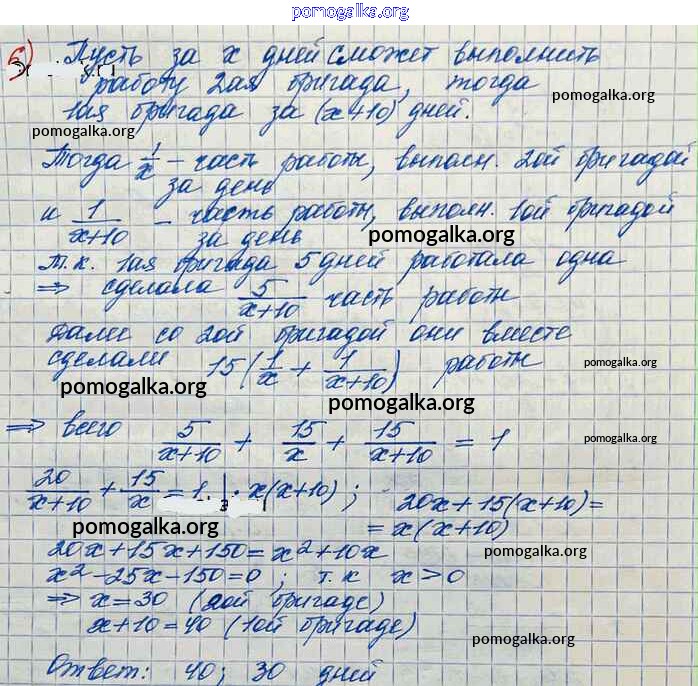 pomogalka.org
6) Пусть за x дней сможет выполнить
работу 2ая бригада, тогда
pomogalka.org
1ая бригада за (x+10) дней.
pomogalka.org
Тогда 1/x - часть работы, выполн. 2ой бригадой
за день
и 1/(x+10) - часть работы, выполн. 1ой бригадой
за день
pomogalka.org
Т.к. 1ая бригада 5 дней работала одна
⇒ сделала 5/(x+10) часть работы
Далее со 2ой бригадой они вместе
сделали 15(1/x + 1/(x+10)) работы
pomogalka.org
pomogalka.org
pomogalka.org
⇒ всего 5/(x+10) + 15/x + 15/(x+10) = 1
pomogalka.org
20/(x+10) + 15/x = 1 | · x(x+10) ; 20x+15(x+10)=
= x(x+10)
pomogalka.org
20x+15x+150=x²+10x
pomogalka.org
x²-25x-150=0 ; т.к x>0
⇒ x=30 (2ой бригаде)
x+10=40 (1ой бригаде)
pomogalka.org
Ответ: 40; 30 дней